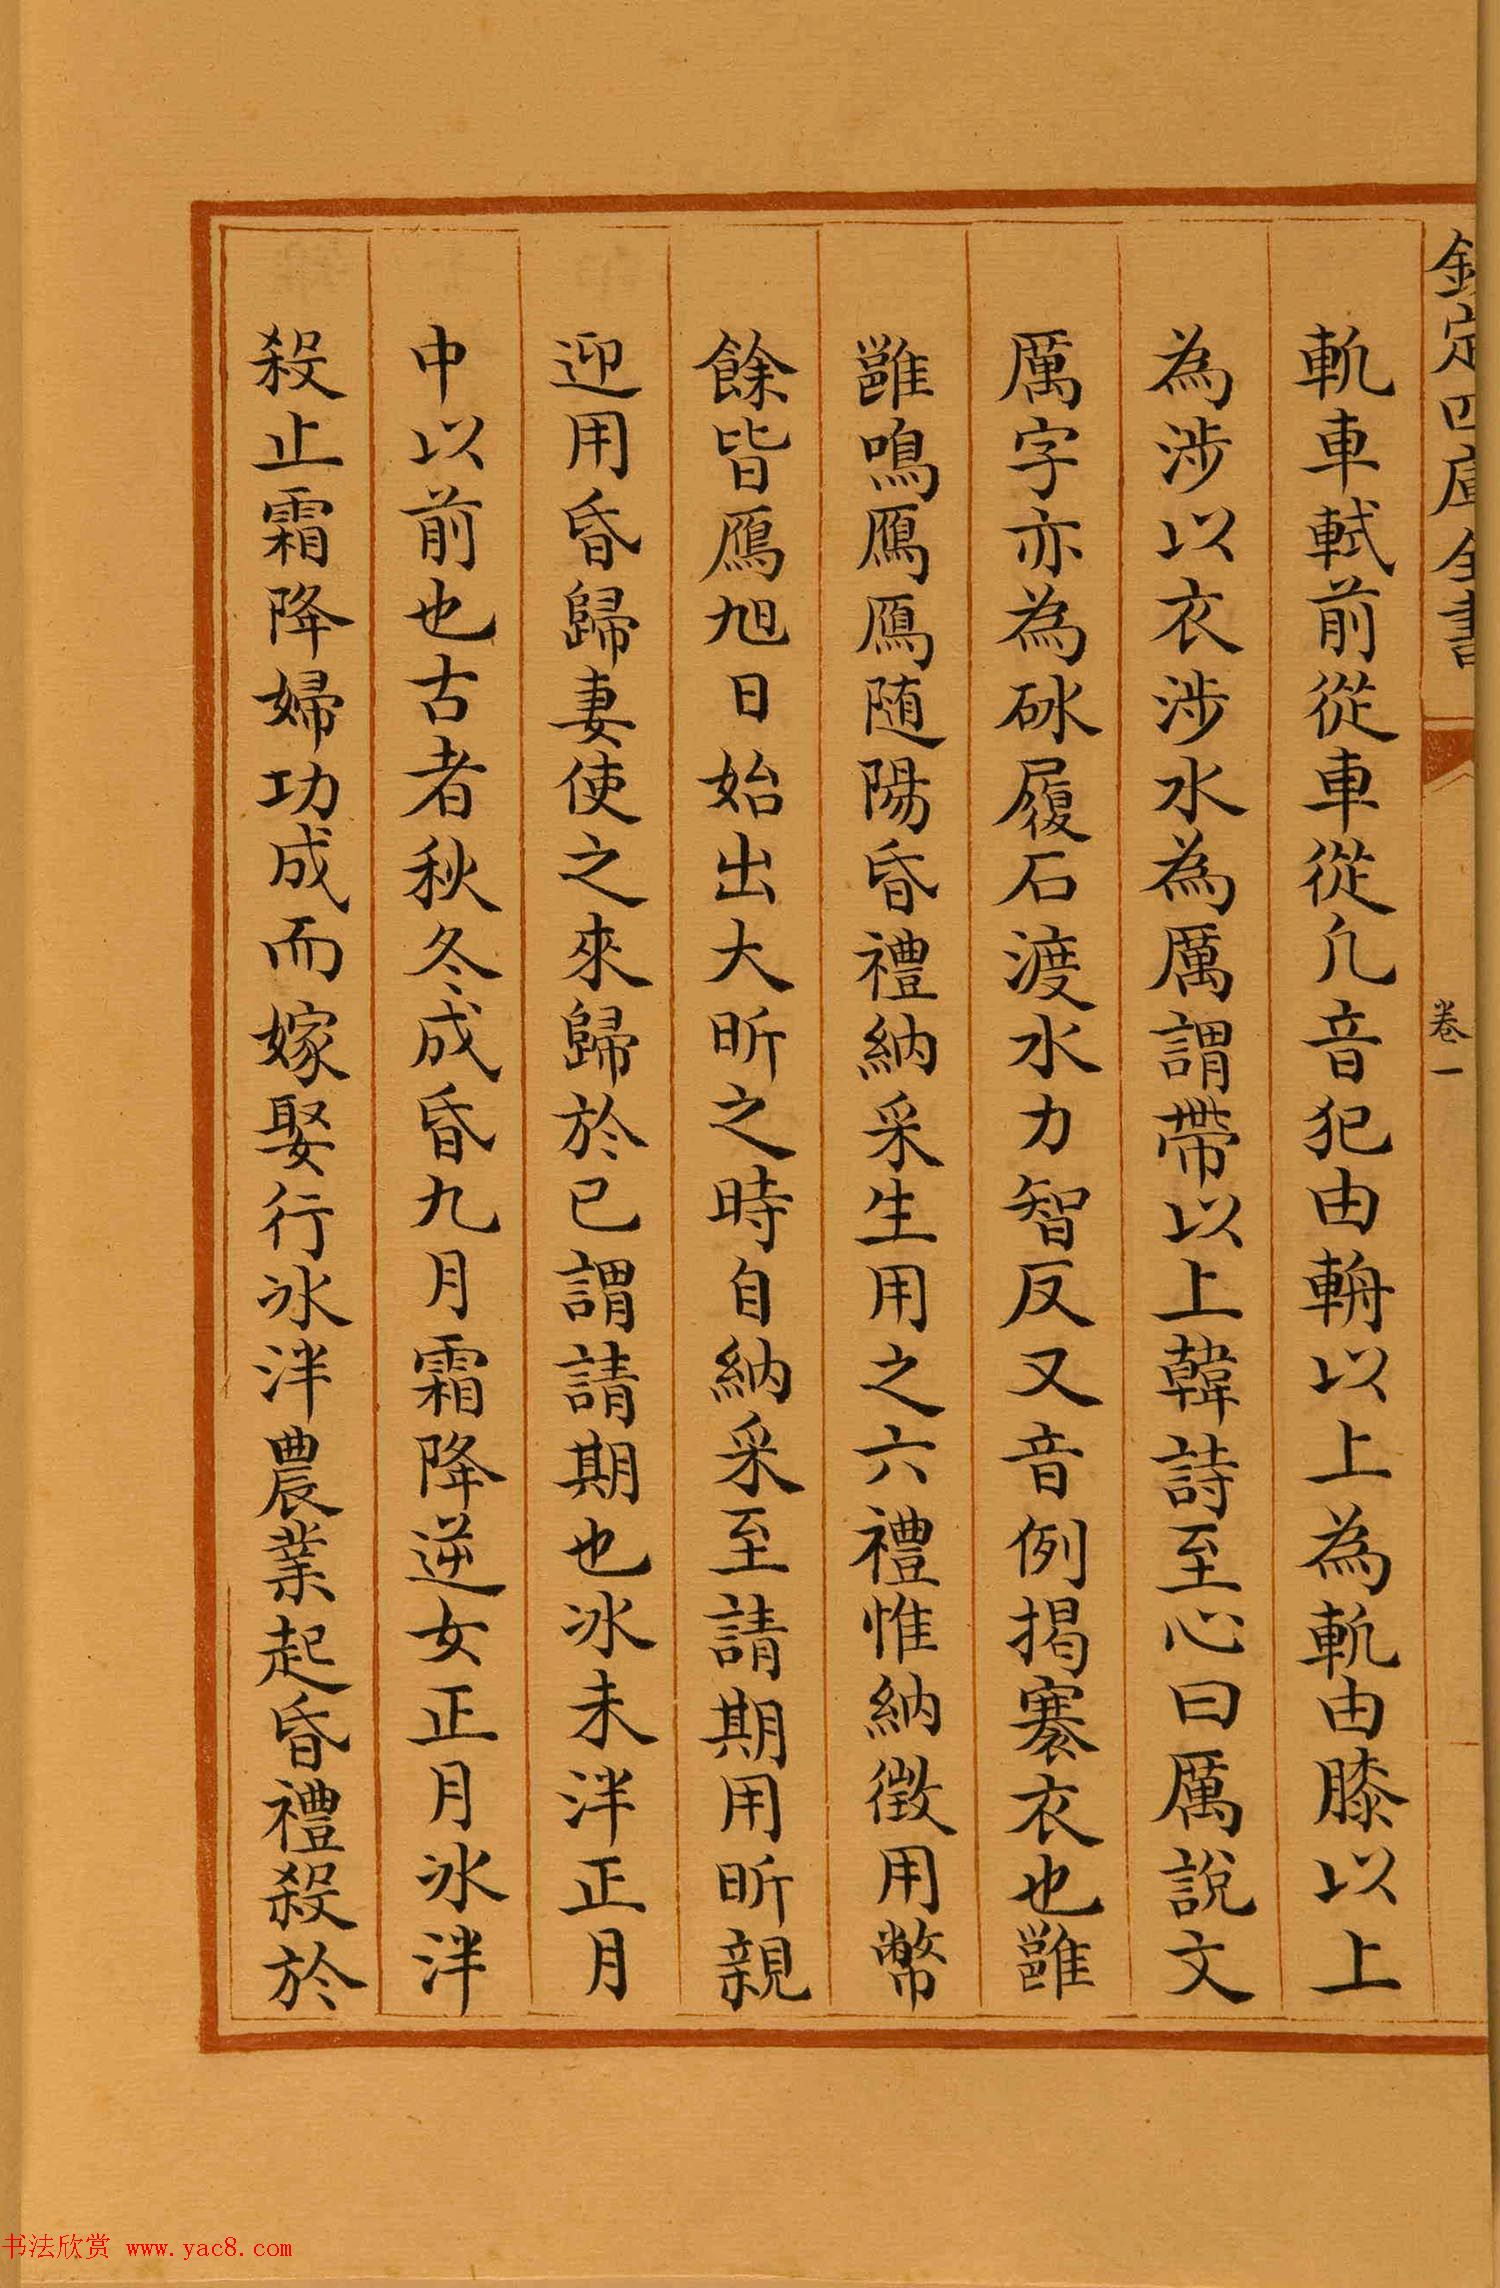 欽定四庫全書
卷一
軓車軾前從車從凡音犯由輈以上為軓由膝以上
為涉以衣涉水為厲謂帶以上韓詩至心曰厲說文
厲字亦為砅履石渡水力智反又音例揭褰衣也雝
雝鳴鴈鴈隨陽昏禮納采生用之六禮惟納徵用幣
餘皆鴈旭日始出大昕之時自納采至請期用昕親
迎用昏歸妻使之來歸於已謂請期也冰未泮正月
中以前也古者秋冬成昏九月霜降逆女正月冰泮
殺止霜降婦功成而嫁娶行冰泮農業起昏禮殺於
书法欣赏 www.yac8.com